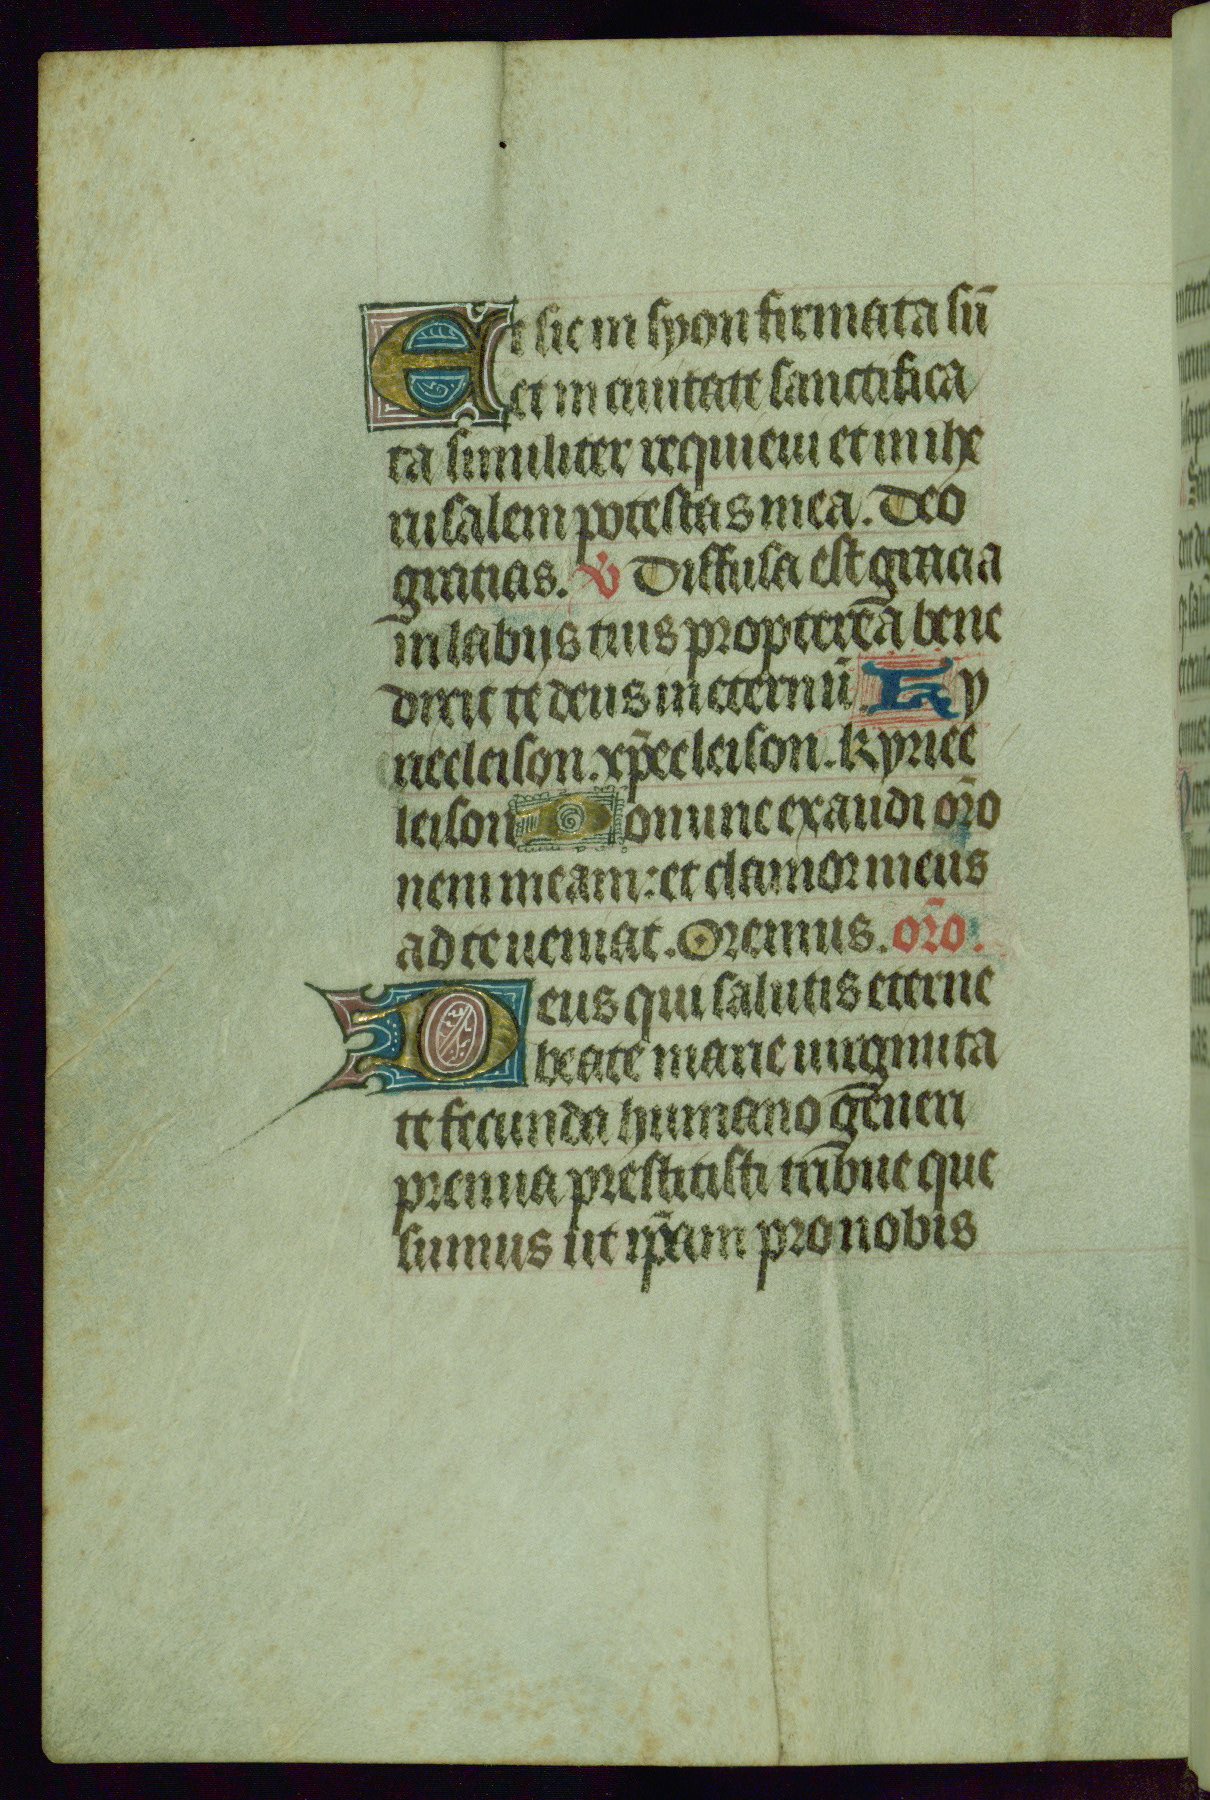 Et sic in syon firmata sū
et in ciuitate sanctifica
ta similiter requieui et in ihe
rusalem potestas mea. Deo
gratias. V Diffusa est gracia
in labijs tuis propterea bene
dixit te deus in eternū. Ky
rieeleison. xp̄eeleison. Kyriee
leison Domine exaudi or̄o
nem meam: et clamor meus
ad te ueniat. Oremus. or̄o.
Deus qui salutis eterne
beate marie uirginita
te fecunda humano generi
premia prestitisti tribue que
sumus ut ip̄am pro nobis